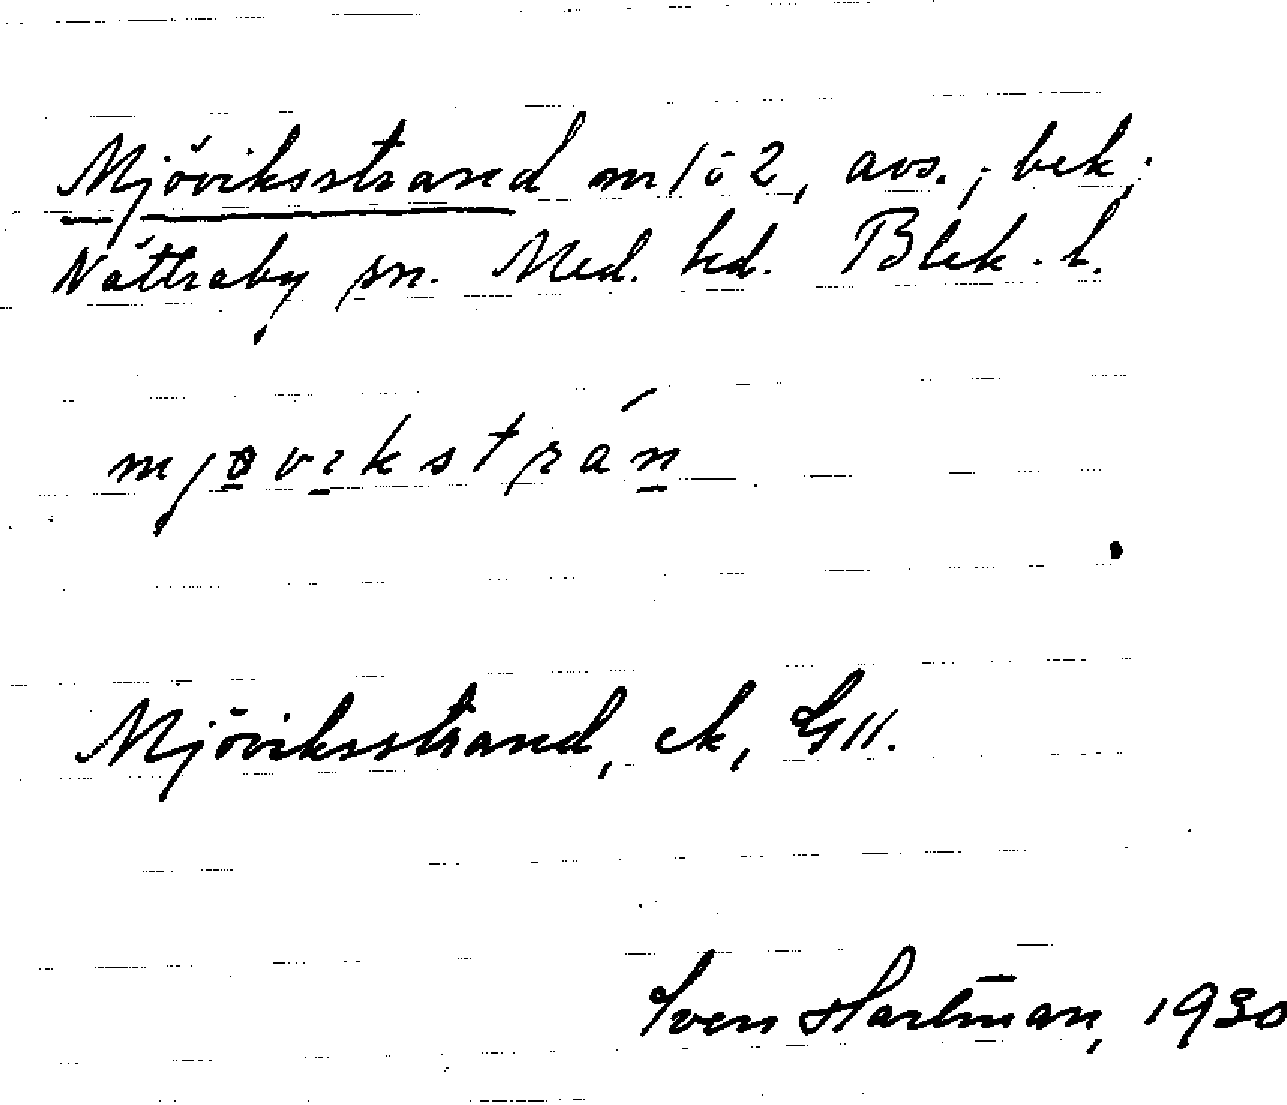 Mjöviksstrand nr 1 ō 2, avs.; bek;
Nättraby sn. Med. hd. Blek. l.
mjøvikstrán
Mjöviksstrand, ek, G11.
Sven Hartman, 1930